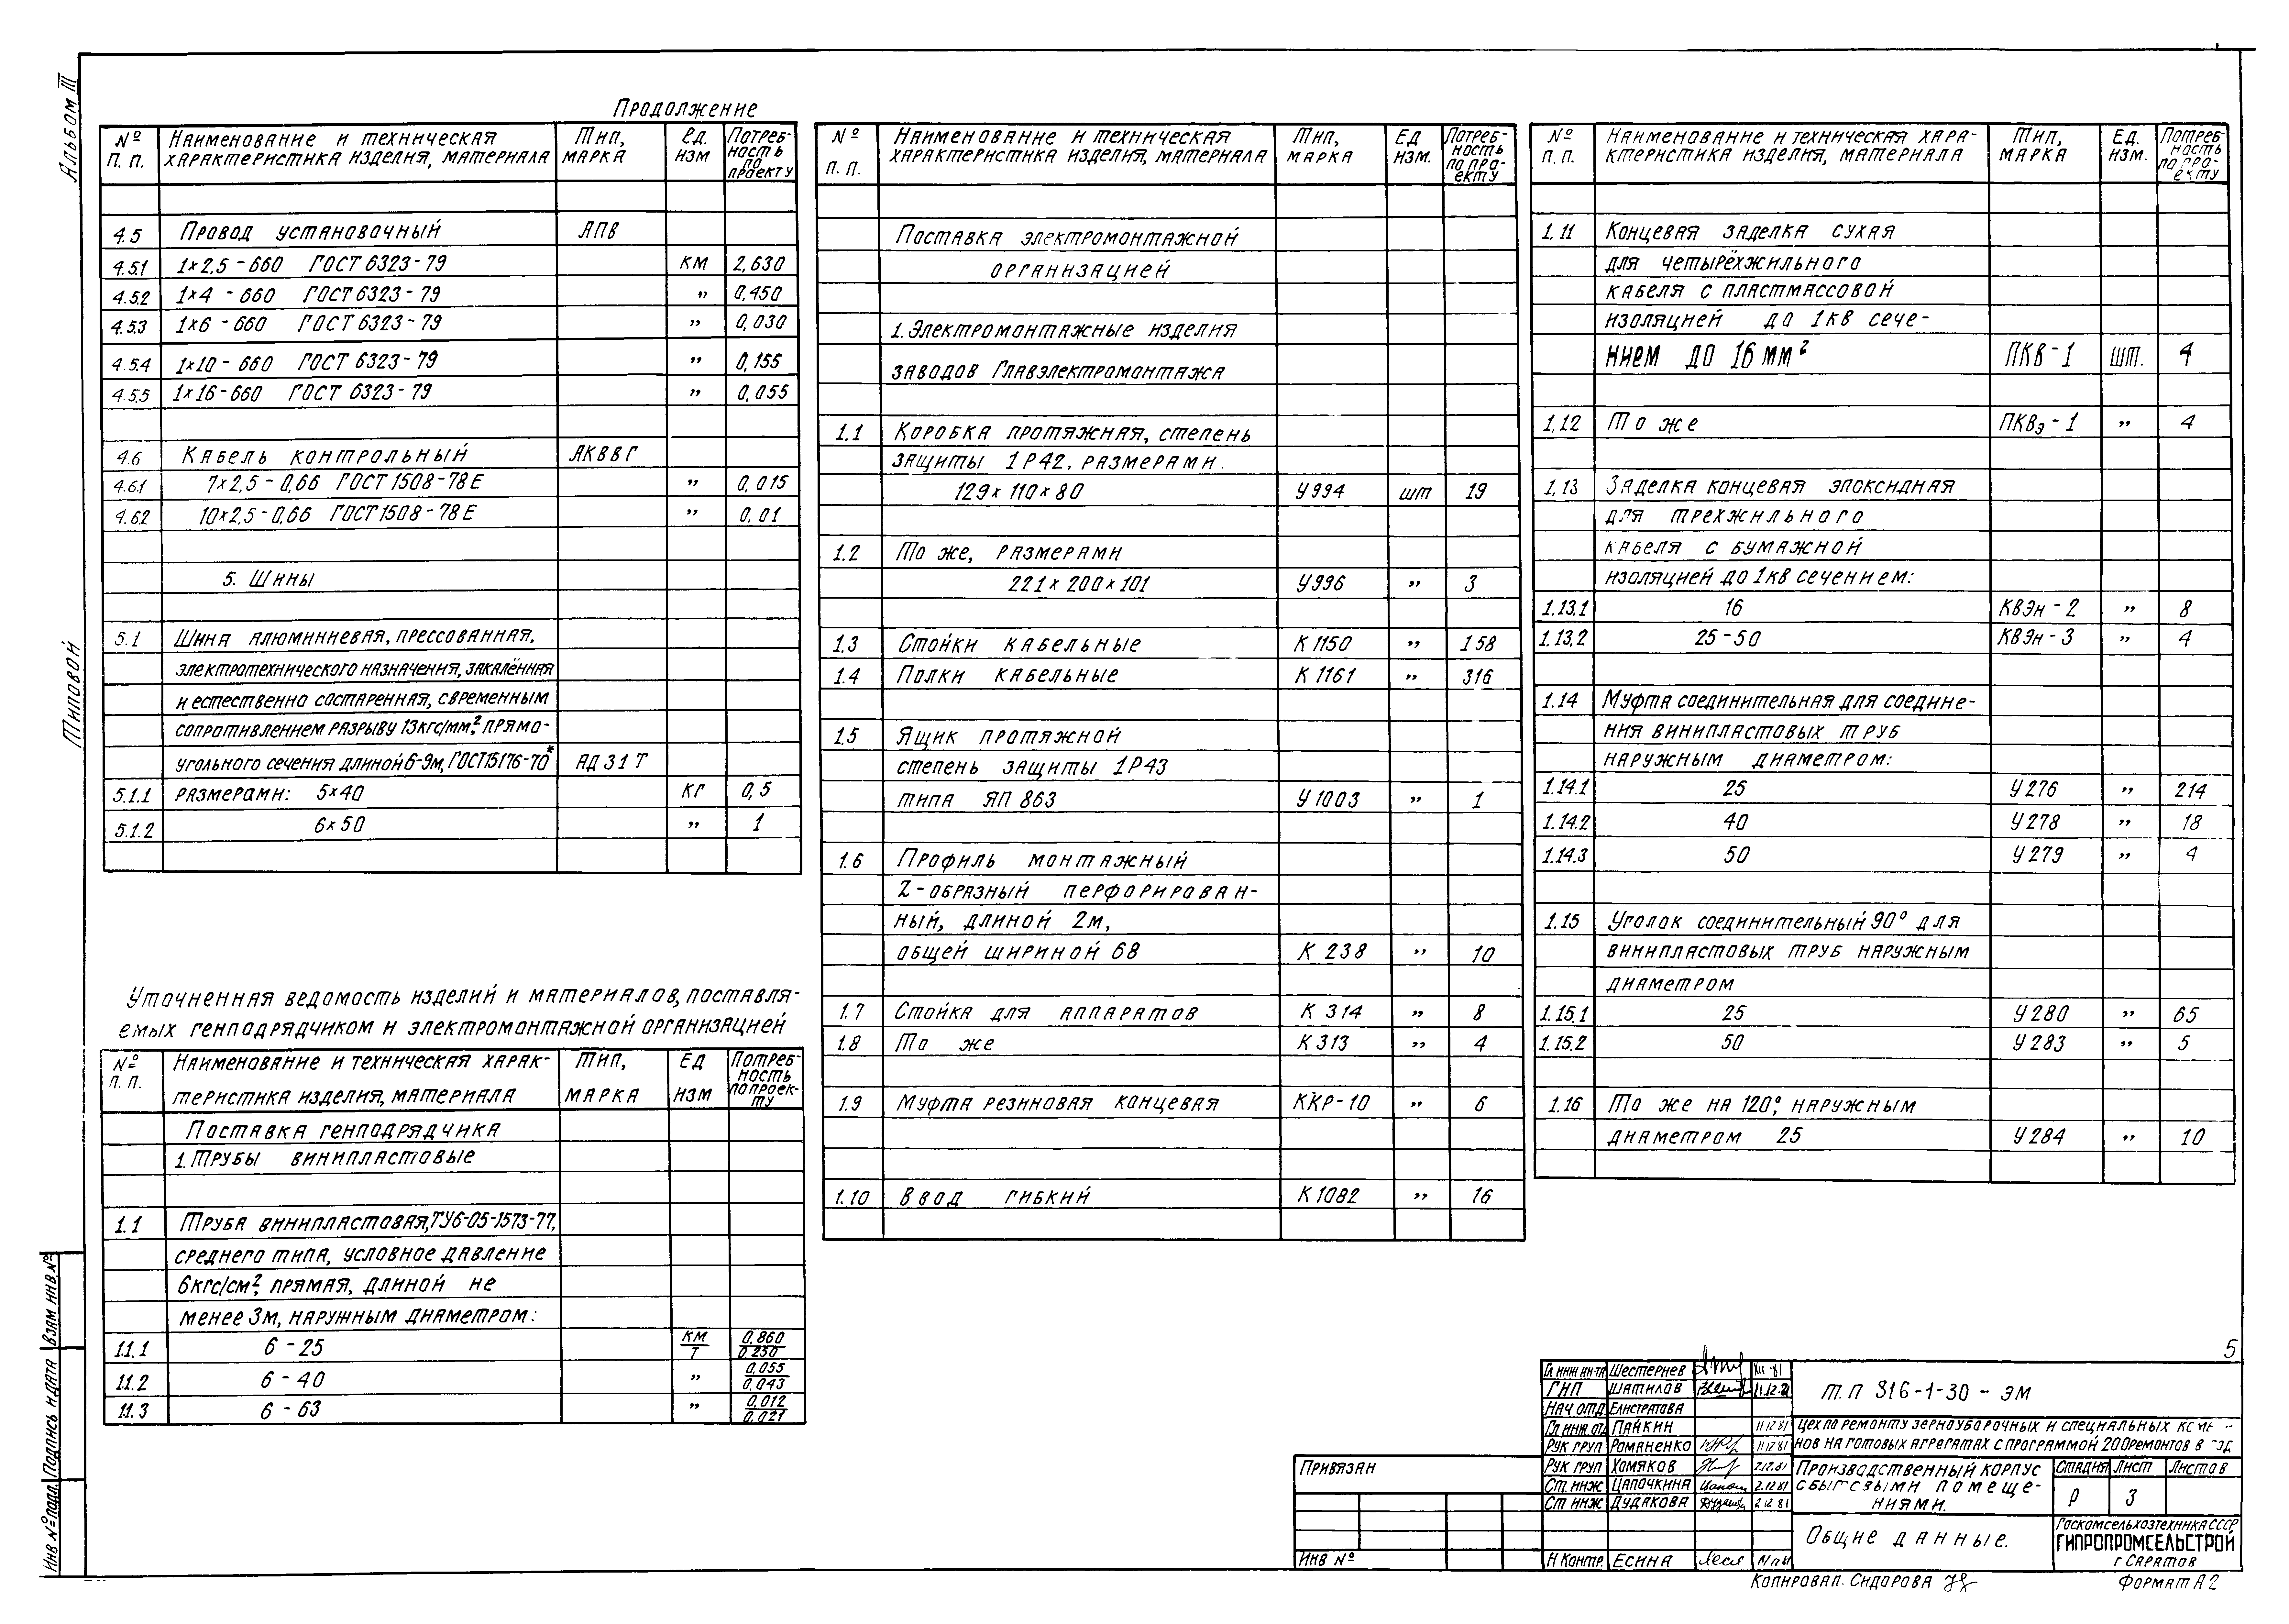 Альбом III
Типовой
Продолжение
№ п.п. Наименование и техническая характеристика изделия, материала Тип, марка Ед. изм Потребность по проекту
4.5 Провод установочный АПВ
4.5.1 1×2,5-660 ГОСТ 6323-79 км 2,630
4.5.2 1×4-660 ГОСТ 6323-79 „ 0,450
4.5.3 1×6-660 ГОСТ 6323-79 „ 0,030
4.5.4 1×10-660 ГОСТ 6323-79 „ 0,155
4.5.5 1×16-660 ГОСТ 6323-79 „ 0,055
4.6 Кабель контрольный АКВВГ
4.6.1 7×2,5-0,66 ГОСТ 1508-78Е „ 0,015
4.6.2 10×2,5-0,66 ГОСТ 1508-78Е „ 0,01
5. Шины
5.1 Шина алюминиевая, прессованная,
электротехнического назначения, закалённая
и естественно состаренная, с временным
сопротивлением разрыву 13кгс/мм², прямо-
угольного сечения длиной 6-9м, ГОСТ 15176-70* АД31Т
5.1.1 размерами: 5×40 кг 0,5
5.1.2 6×50 „ 1
Уточненная ведомость изделий и материалов, поставля-
емых генподрядчиком и электромонтажной организацией
№ п.п. Наименование и техническая харак-
теристика изделия, материала Тип, марка Ед изм Потребность по проекту
Поставка генподрядчика
1. Трубы винипластовые
1.1 Труба винипластовая, ТУ6-05-1573-77,
среднего типа, условное давление
6кгс/см², прямая, длиной не
менее 3м, наружным диаметром:
1.1.1 6-25 км/т 0,860/0,250
1.1.2 6-40 „ 0,055/0,043
1.1.3 6-63 „ 0,012/0,021
№ п.п. Наименование и техническая характеристика изделия, материала Тип, марка Ед изм. Потребность по проекту
Поставка электромонтажной
организацией
1. Электромонтажные изделия
заводов Главэлектромонтажа
1.1 Коробка протяжная, степень
защиты 1Р42, размерами.
129×110×80 У994 шт 19
1.2 То же, размерами
221×200×101 У996 „ 3
1.3 Стойки кабельные К1150 „ 158
1.4 Полки кабельные К1161 „ 316
1.5 Ящик протяжной
степень защиты 1Р43
типа ЯП 863 У1003 „ 1
1.6 Профиль монтажный
Z-образный перфорирован-
ный, длиной 2м,
общей шириной 68 К 238 „ 10
1.7 Стойка для аппаратов К 314 „ 8
1.8 То же К 313 „ 4
1.9 Муфта резиновая концевая ККР-10 „ 6
1.10 Ввод гибкий К1082 „ 16
№ п.п. Наименование и техническая хара-
ктеристика изделия, материала Тип, марка Ед. изм. Потребность по проекту
1.11 Концевая заделка сухая
для четырёхжильного
кабеля с пластмассовой
изоляцией до 1кв сече-
нием до 16 мм² ПКВ-1 шт. 4
1.12 То же ПКВэ-1 „ 4
1.13 Заделка концевая эпоксидная
для трехжильного
кабеля с бумажной
изоляцией до 1кв сечением:
1.13.1 16 КВЭн-2 „ 8
1.13.2 25-50 КВЭн-3 „ 4
1.14 Муфта соединительная для соедине-
ния винипластовых труб
наружным диаметром:
1.14.1 25 У276 „ 214
1.14.2 40 У278 „ 18
1.14.3 50 У279 „ 4
1.15 Уголок соединительный 90° для
винипластовых труб наружным
диаметром
1.15.1 25 У280 „ 65
1.15.2 50 У283 „ 5
1.16 То же на 120°, наружным
диаметром 25 У284 „ 10
5
Гл инж ин-та Шестернев XII 81
ГИП Шатилов 11.12.81
Нач отд. Елистратова
Гл инж. отд Пайкин 11 12 81
Рук груп Романенко 11 12 81
Рук груп Хомяков 2.12.81
Ст. инж Цапочкина 2.12 81
Ст инж Дудакова 2 12 81
Н контр. Есина
Т.П 816-1-30 - ЭМ
Цех по ремонту зерноуборочных и специальных
нов на готовых агрегатах с программой 200 ремонтов в год
Производственный корпус
с бытовыми помеще-
ниями.
Стадия Лист Листов
Р 3
Общие данные.
Госкомсельхозтехника СССР
ГИПРОПРОМСЕЛЬСТРОЙ
г Саратов
Привязан
Инв №
Копировал. Сидорова
Формат А2
Инв № подл. Подпись и дата Взам инв. №